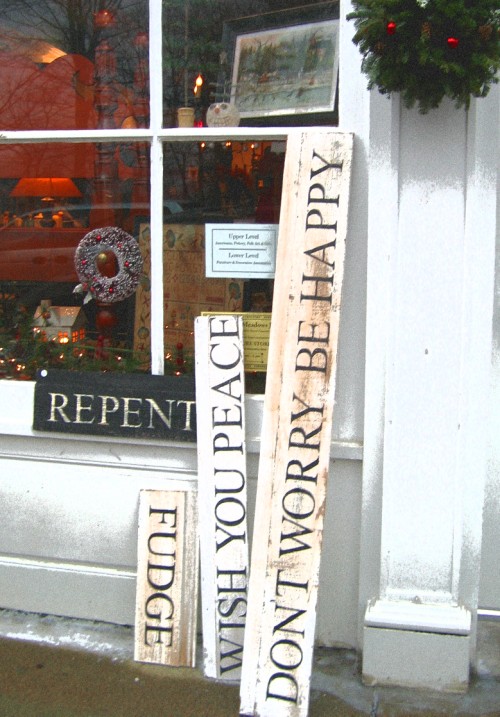 Upper Level
Lower Level
REPENT
FUDGE
WISH YOU PEACE
DON'T WORRY BE HAPPY